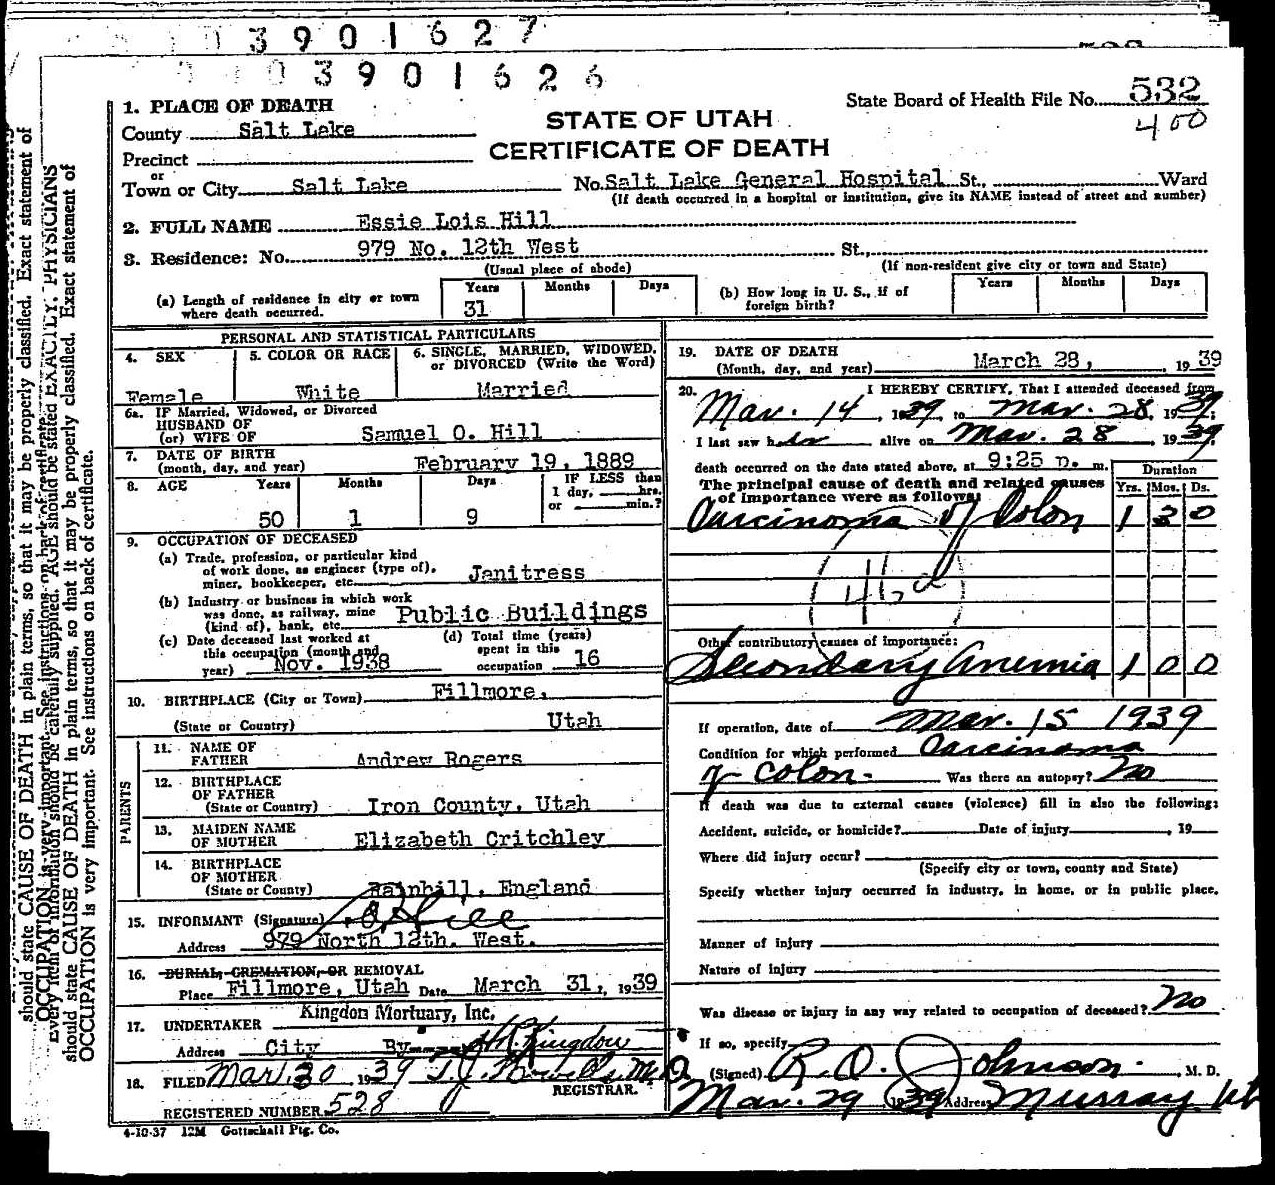 3 9 0 1 6 2 7
0 3 9 0 1 6 2 6
State Board of Health File No. 532
400
STATE OF UTAH
CERTIFICATE OF DEATH
1. PLACE OF DEATH
County Salt Lake
Precinct
or
Town or City Salt Lake No. Salt Lake General Hospital St., Ward
(If death occurred in a hospital or institution, give its NAME instead of street and number)
2. FULL NAME Essie Lois Hill
3. Residence: No. 979 No. 12th West St.,
(Usual place of abode) (If non-resident give city or town and State)
(a) Length of residence in city or town where death occurred. Years 31 Months Days
(b) How long in U. S., if of foreign birth? Years Months Days
PERSONAL AND STATISTICAL PARTICULARS
4. SEX Female
5. COLOR OR RACE White
6. SINGLE, MARRIED, WIDOWED, or DIVORCED (Write the Word) Married
6a. IF Married, Widowed, or Divorced
HUSBAND OF
(or) WIFE OF Samuel O. Hill
7. DATE OF BIRTH
(month, day, and year) February 19, 1889
8. AGE Years 50 Months 1 Days 9 IF LESS than 1 day, hrs. or min.?
9. OCCUPATION OF DECEASED
(a) Trade, profession, or particular kind
of work done, as engineer (type of),
miner, bookkeeper, etc. Janitress
(b) Industry or business in which work
was done, as railway, mine
(kind of), bank, etc. Public Buildings
(c) Date deceased last worked at
this occupation (month and
year) Nov. 1938
(d) Total time (years)
spent in this
occupation 16
10. BIRTHPLACE (City or Town) Fillmore,
(State or Country) Utah
PARENTS
11. NAME OF
FATHER Andrew Rogers
12. BIRTHPLACE
OF FATHER
(State or Country) Iron County, Utah
13. MAIDEN NAME
OF MOTHER Elizabeth Critchley
14. BIRTHPLACE
OF MOTHER
(State or Country) Rainhill, England
15. INFORMANT (Signature) S.O. Hill
Address 979 North 12th. West.
16. BURIAL, CREMATION, OR REMOVAL
Place Fillmore, Utah Date March 31, 1939
17. UNDERTAKER Kingdon Mortuary, Inc.
Address City By Kingdon
18. FILED Mar. 30 1939 T.J. Howells M.D.
REGISTRAR.
REGISTERED NUMBER 528
4-10-37 12M Gottschall Ptg. Co.
19. DATE OF DEATH
(Month, day, and year) March 28, 1939
20. I HEREBY CERTIFY, That I attended deceased from
Mar. 14, 1939 to Mar. 28, 1939;
I last saw her alive on Mar. 28, 1939
death occurred on the date stated above, at 9:25 p. m.
The principal cause of death and related causes
of importance were as follows:
Duration
Yrs. Mos. Ds.
Carcinoma of Colon 1 3 0
46d
Other contributory causes of importance:
Secondary Anemia 1 0 0
If operation, date of Mar. 15 1939
Condition for which performed Carcinoma
of Colon. Was there an autopsy? No
If death was due to external causes (violence) fill in also the following:
Accident, suicide, or homicide? Date of injury , 19
Where did injury occur?
(Specify city or town, county and State)
Specify whether injury occurred in industry, in home, or in public place.
Manner of injury
Nature of injury
Was disease or injury in any way related to occupation of deceased? No
If so, specify
(Signed) R. O. Johnson. , M. D.
Mar. 29 1939 Address Murray, Ut
should state CAUSE OF DEATH in plain terms, so that it may be properly classified. Exact statement of
Every item of information should be carefully supplied. AGE should be stated EXACTLY. PHYSICIANS
should state CAUSE OF DEATH in plain terms, so that it may be properly classified. Exact statement of
OCCUPATION is very important. See instructions on back of certificate.